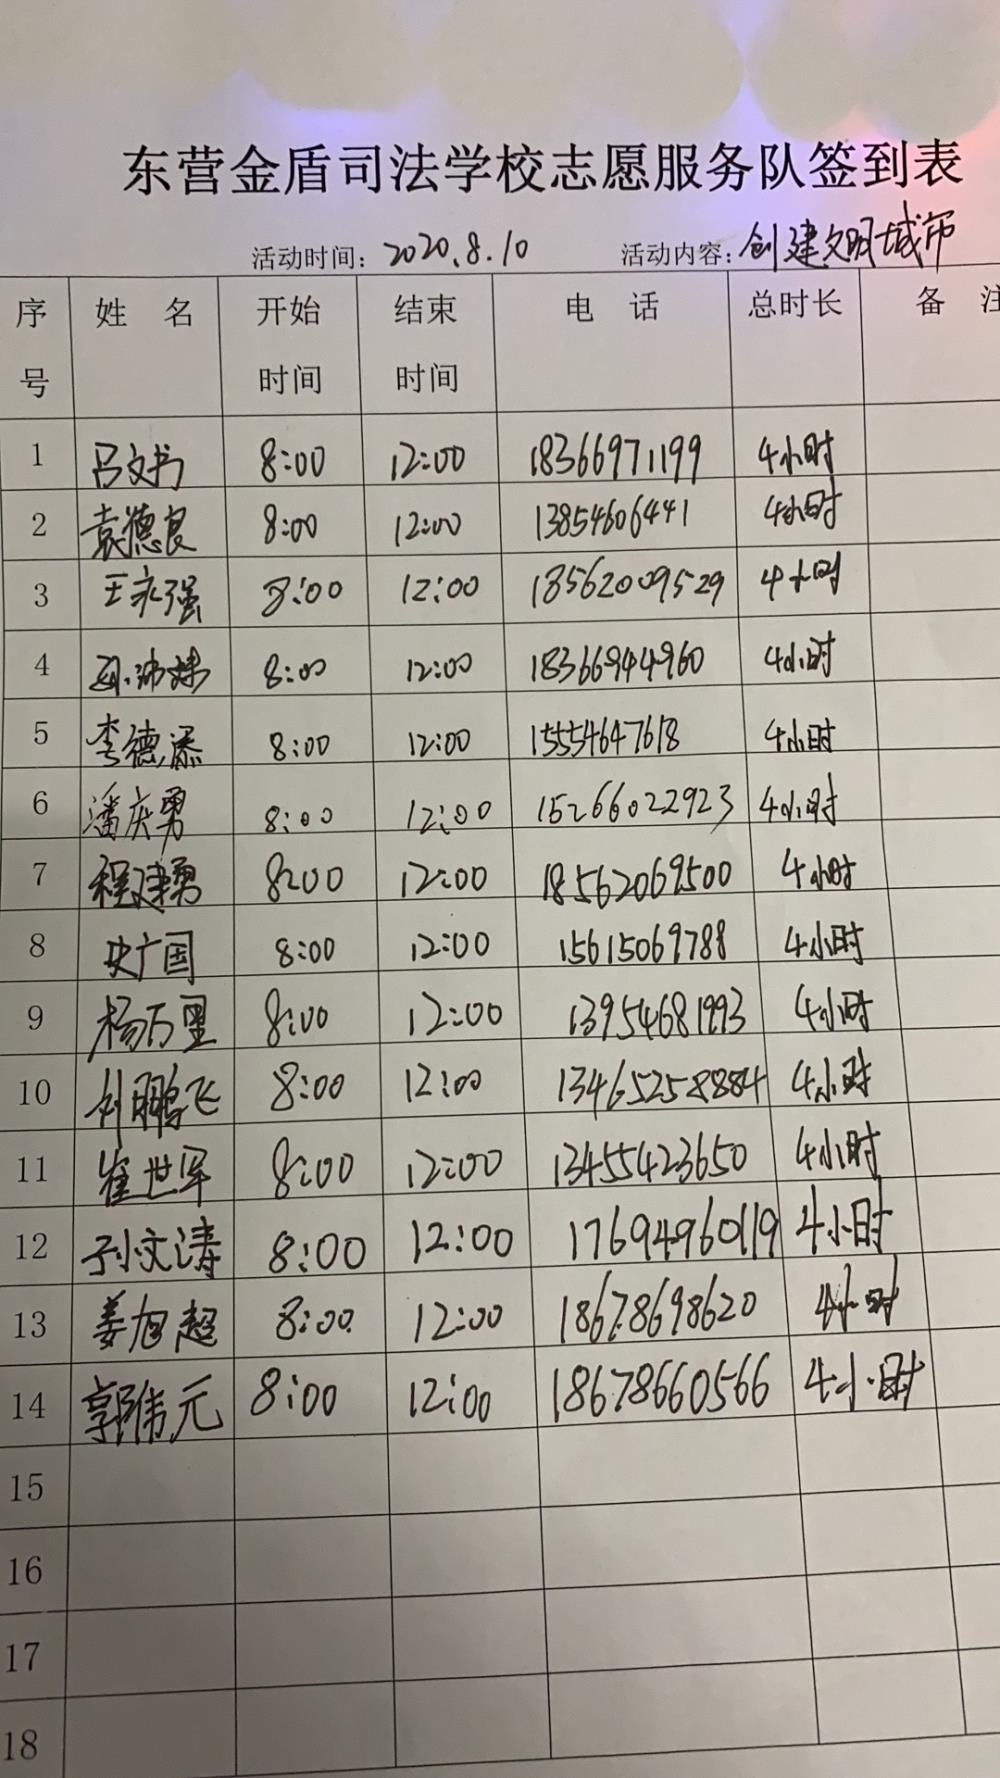 东营金盾司法学校志愿服务队签到表
活动时间：2020.8.10 活动内容：创建文明城市
序号 姓名 开始时间 结束时间 电话 总时长 备注
1 吕文书 8:00 12:00 18366971199 4小时
2 袁德良 8:00 12:00 13854606441 4小时
3 王永强 8:00 12:00 18562009529 4小时
4 8:00 12:00 18366944960 4小时
5 李德添 8:00 12:00 15554647618 4小时
6 潘庆勇 8:00 12:00 15266022923 4小时
7 程建勇 8:00 12:00 18562069500 4小时
8 史广国 8:00 12:00 15615069788 4小时
9 杨万里 8:00 12:00 13954681993 4小时
10 刘鹏飞 8:00 12:00 13465258884 4小时
11 崔世军 8:00 12:00 13455423650 4小时
12 孙文涛 8:00 12:00 17694960119 4小时
13 姜旭超 8:00 12:00 18678698620 4小时
14 郭伟元 8:00 12:00 18678660566 4小时
15
16
17
18